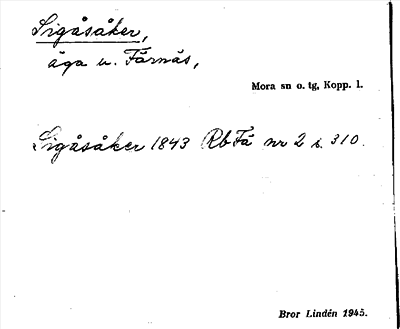 Sigåsåker,
äga u. Färnäs,
Mora sn o. tg, Kopp. l.
Sigåsåker 1843 Rb Fä nr 2 s. 310.
Bror Lindén 1945.